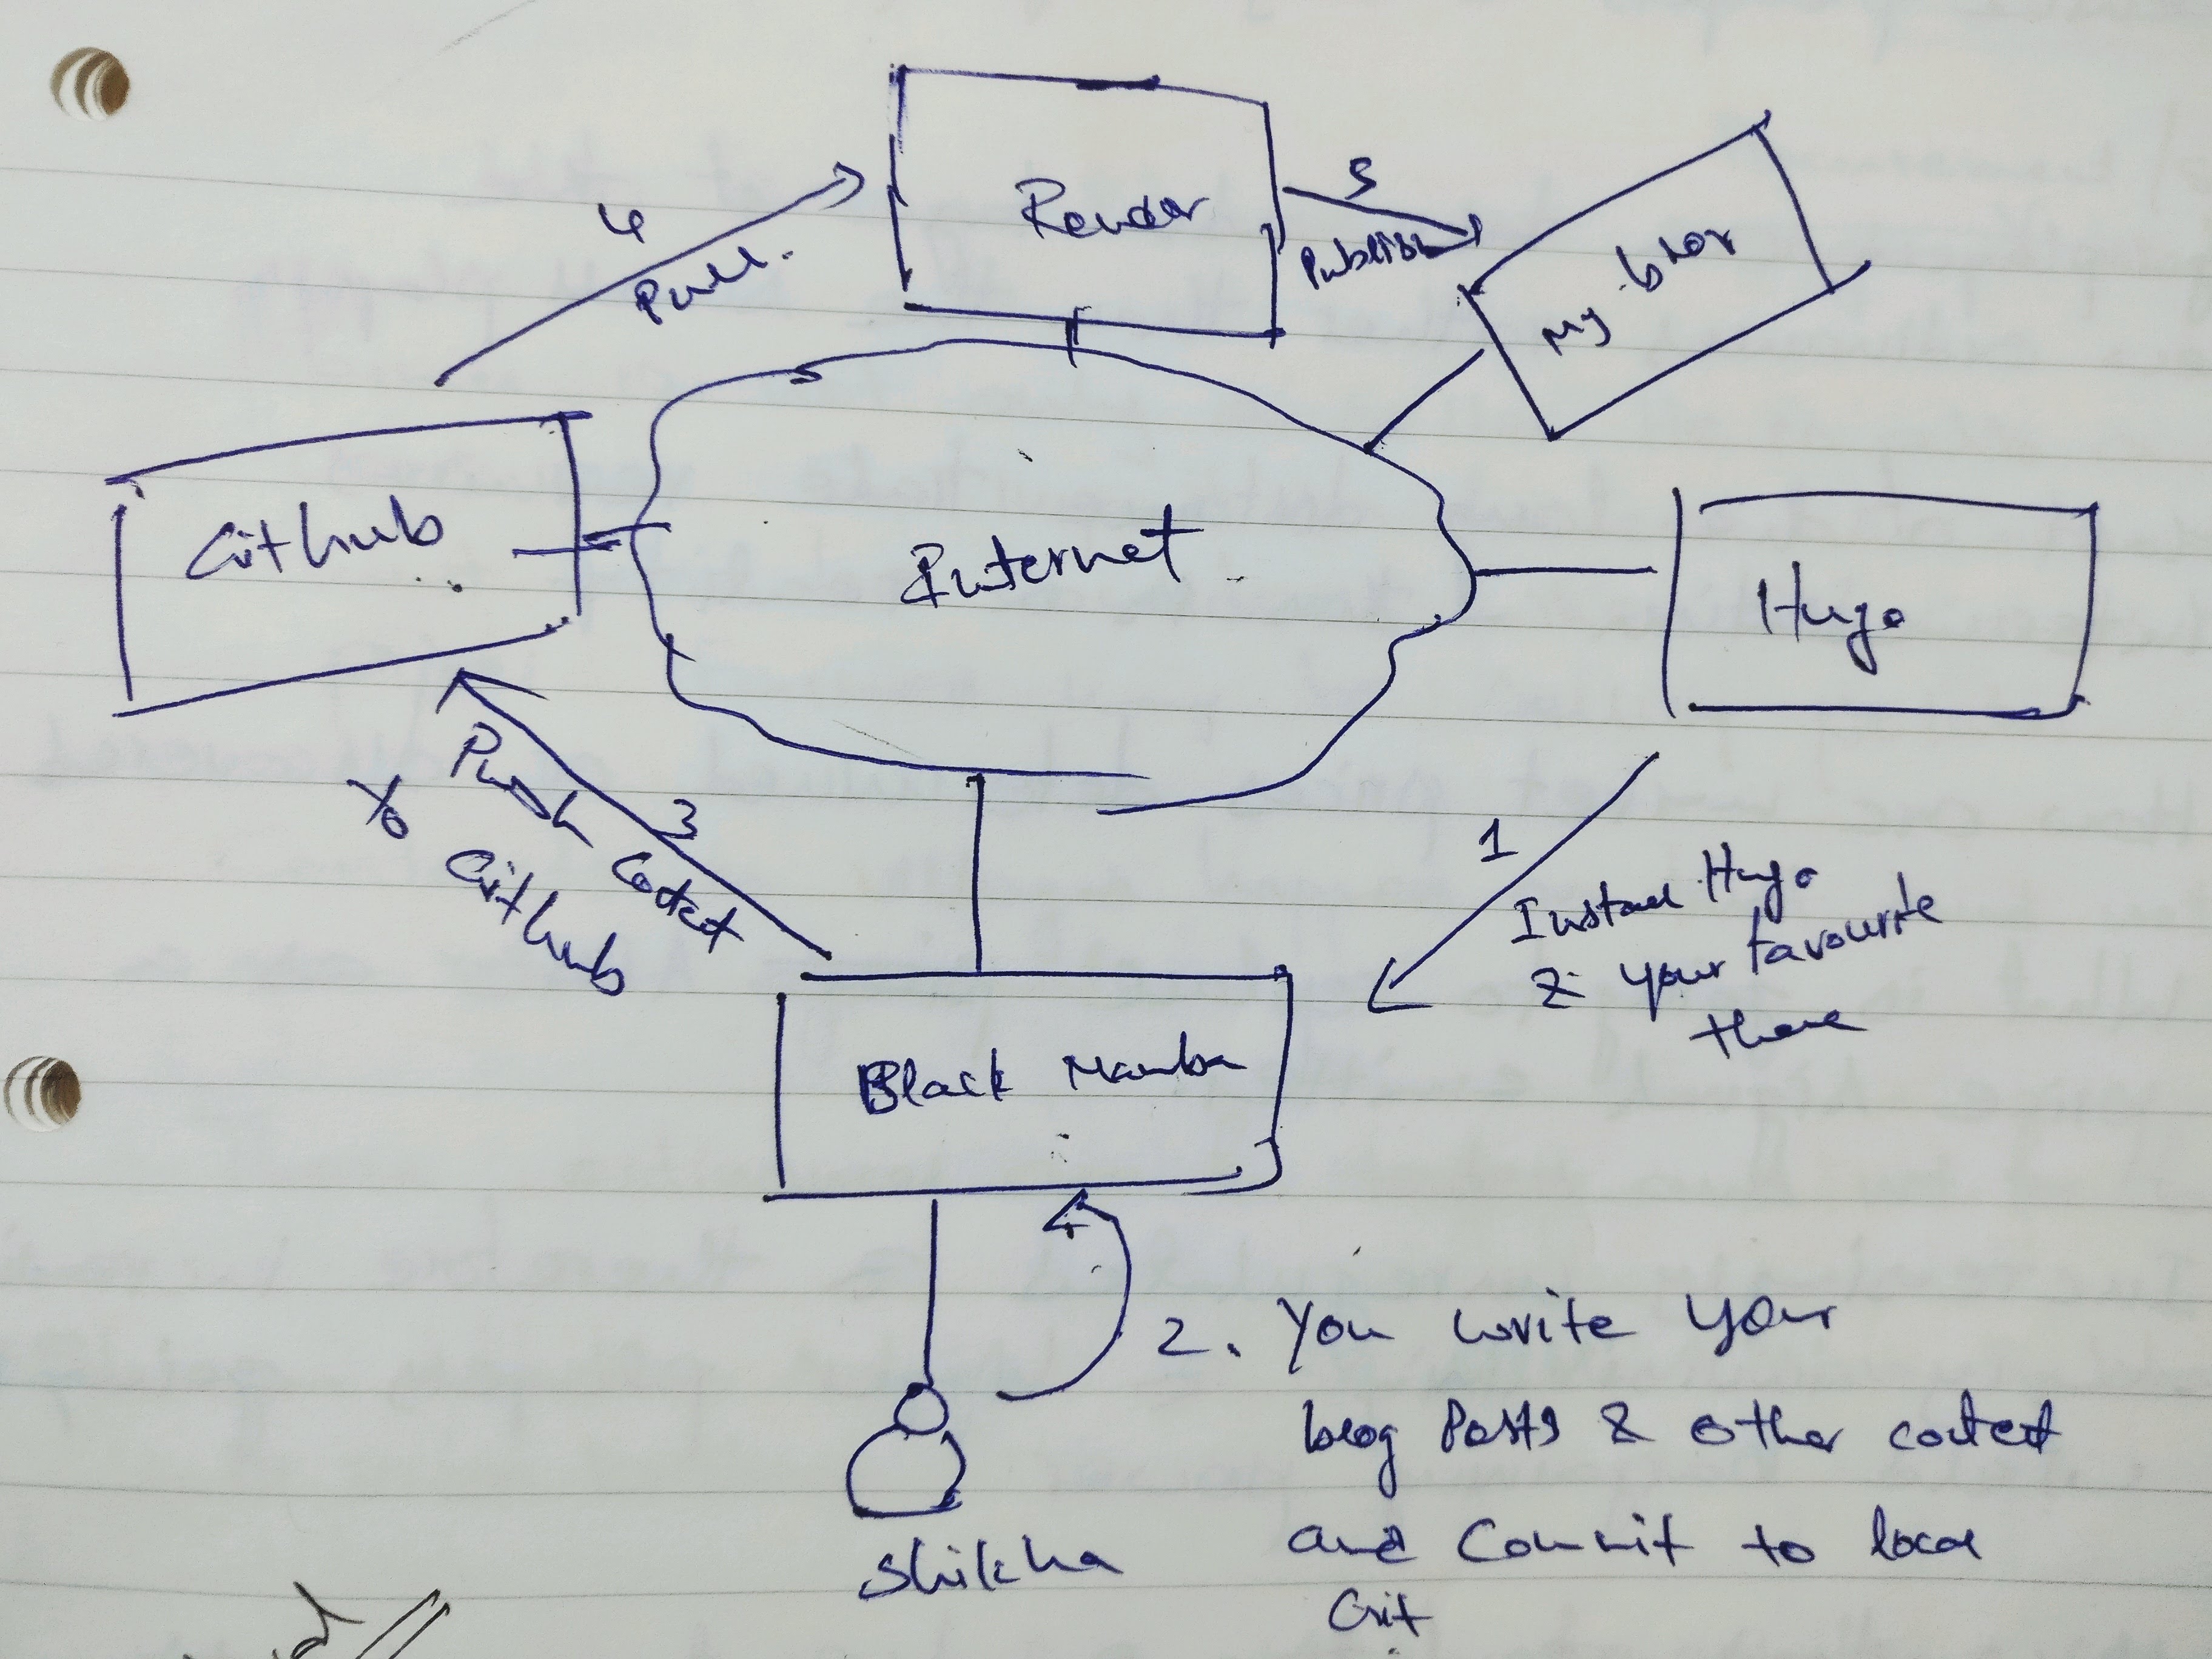 Render
5
Publish
My blog
4
Pull.
Github
Internet
Hugo
1
Install Hugo
& your favourite
theme
3
Push Content
to Github
Black Mamba
2. You write your
blog Posts & other content
and Commit to local
Git
Shikha